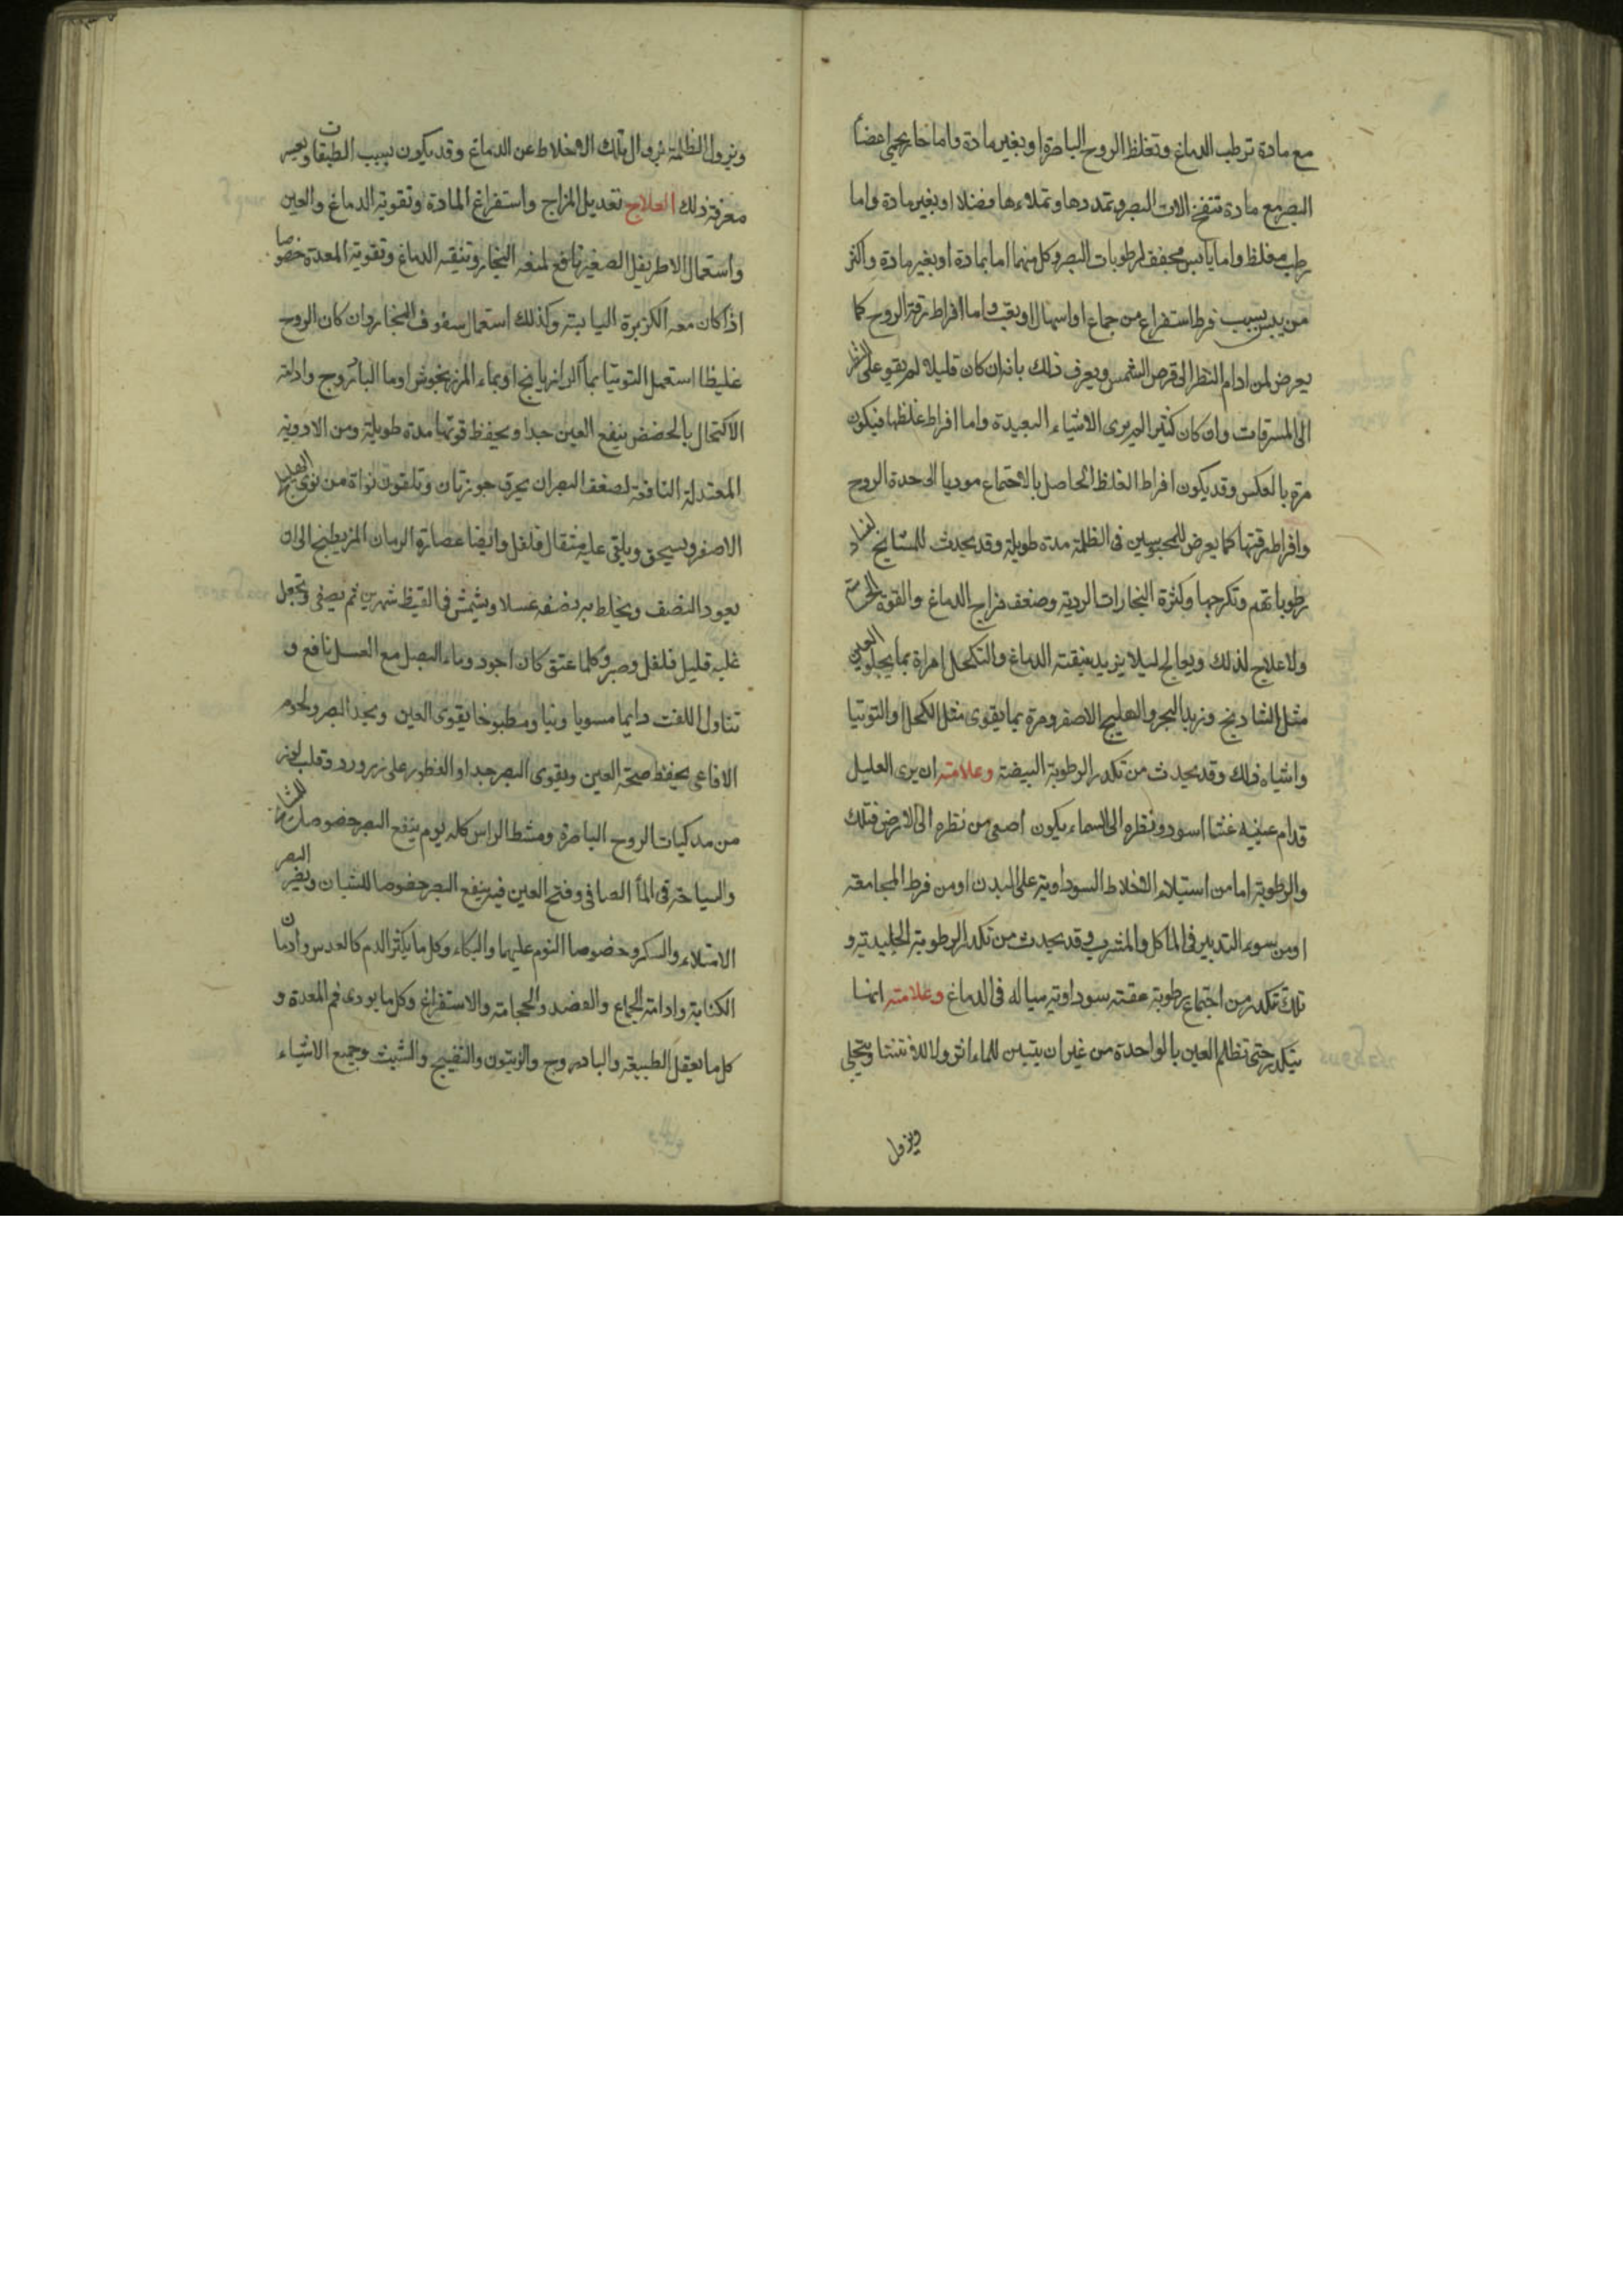 مع مادة ترطب الدماغ وتغلظ الروح الباصرة او بغير مادة واما خارجي اعضأ
البصر مع مادة تنفخ الات البصر وتمددها وتملاءها فضلا او بغير مادة واما
رطب مغلظ واما يابس مجفف لرطوبات البصر وكل منهما اما بمادة او بغير مادة واكثر
من يبس بسبب فرط استفراغ من جماع او اسهال او تعب واما افراط رقة الروح كما
يعرض لمن ادام النظر الى قرص الشمس ويعرف ذلك بانه ان كان قليلا لم يقو على النظر
الى المسرقات وان كان كثيرا لم يرى الاشياء البعيدة واما افراط غلظها فيكون
مرة بالعكس وقد يكون افراط الغلظ الحاصل بالاجتماع موديا الى حدة الروح
وافراط رقتها كما يعرض للمحبوسين فى الظلمة مدة طويلة وقد يحدث للمشايخ لفساد
رطوباتهم وتكرجها وكثرة البخارات الردية وضعف مزاج الدماغ والقوة
ولا علاج لذلك ويعالج ليلا يزيد بتنقية الدماغ والتكحل امرارة بما يجلو العين
مثل الشادنج وزبد البحر والهليج الاصفر ومرة بما يقوى مثل الكحل والتوتيا
واشباه ذلك وقد يحدث من تكدر الرطوبة البيضة وعلامته ان يرى العليل
قدام عينيه غشا اسود ونظره الى السماء يكون اصفى من نظره الى الارض فتلك
والرطوبة اما من استيلاء الاخلاط السوداوية على البدن او من فرط المجامعة
او من سوء التدبير فى الماكل والمشرب وقد يحدث من تكدر الرطوبة الجليدية و
تلك تكدر من اجتماع رطوبة عفنة سوداوية سيالة فى الدماغ وعلامته انها
يتكدر حتى تظلم العين بالواحدة من غير ان يتبين للماء اثر ولا للا وينجلى
ويزول
ويزول الظلمة بزوال تلك الاخلاط عن الدماغ وقد يكون بسبب الطبقات ويعسر
معرفة ذلك العلاج تعديل المزاج واستفراغ المادة وتقوية الدماغ والعين
واستعمال الاطريفل الصغير نافع لمنعه البخار وتنقيه الدماغ وتقوية المعدة خصوصا
اذا كان معه الكزبرة اليابسة وكذلك استعمال سفوف البخار وان كان الروح
غليظا استعمل التوتيا بماء الرازيانج او بماء المرزنجوش او ما الباذروج وادامة
الاكتحال بالحضض ينفع العين جدا ويحفظ قوتها مدة طويلة ومن الادوية
المعتدلة النافعة لضعف البصر ان يحرق جوزتان وثلثون نواة من نوى الهليلج
الاصفر ويسحق ويلقى عليه مثقال فلفل وايضا عصارة الرمان المز يطبخ الى ان
يعود النصف ويخلط به نصفه عسلا ويشمش فى القيظ شهرين ثم يصفى ويجعل
عليه قليل فلفل وصبر وكلما عتق كان اجود وماء البصل مع العسل نافع و
تناول اللفت دايما مسويا ونيا ومطبوخا يقوى العين ويحد البصر ولحوم
الافاعى يحفظ صحة العين ويقوى البصر جدا والفطور على زرورد وقلب لوز
من مدكيات الروح الباصرة ومشط الراس كله يوم ينفع البصر خصوصا للمشايخ
والسياحة فى الماأ الصافى وفتح العين فيه ينفع البصر خصوصا للشبان ويضر البصر
الامتلاء والسكر وخصوصا النوم عليهما والبكاء وكل ما يكثر الدم كالعدس وادمان
الكتابة وادامة الجماع والفصد والحجامة والاستفراغ وكل ما يودى فم المعدة و
كل ما يعقل الطبيعة والبادروج والزيتون والشبث وجميع الاشياء